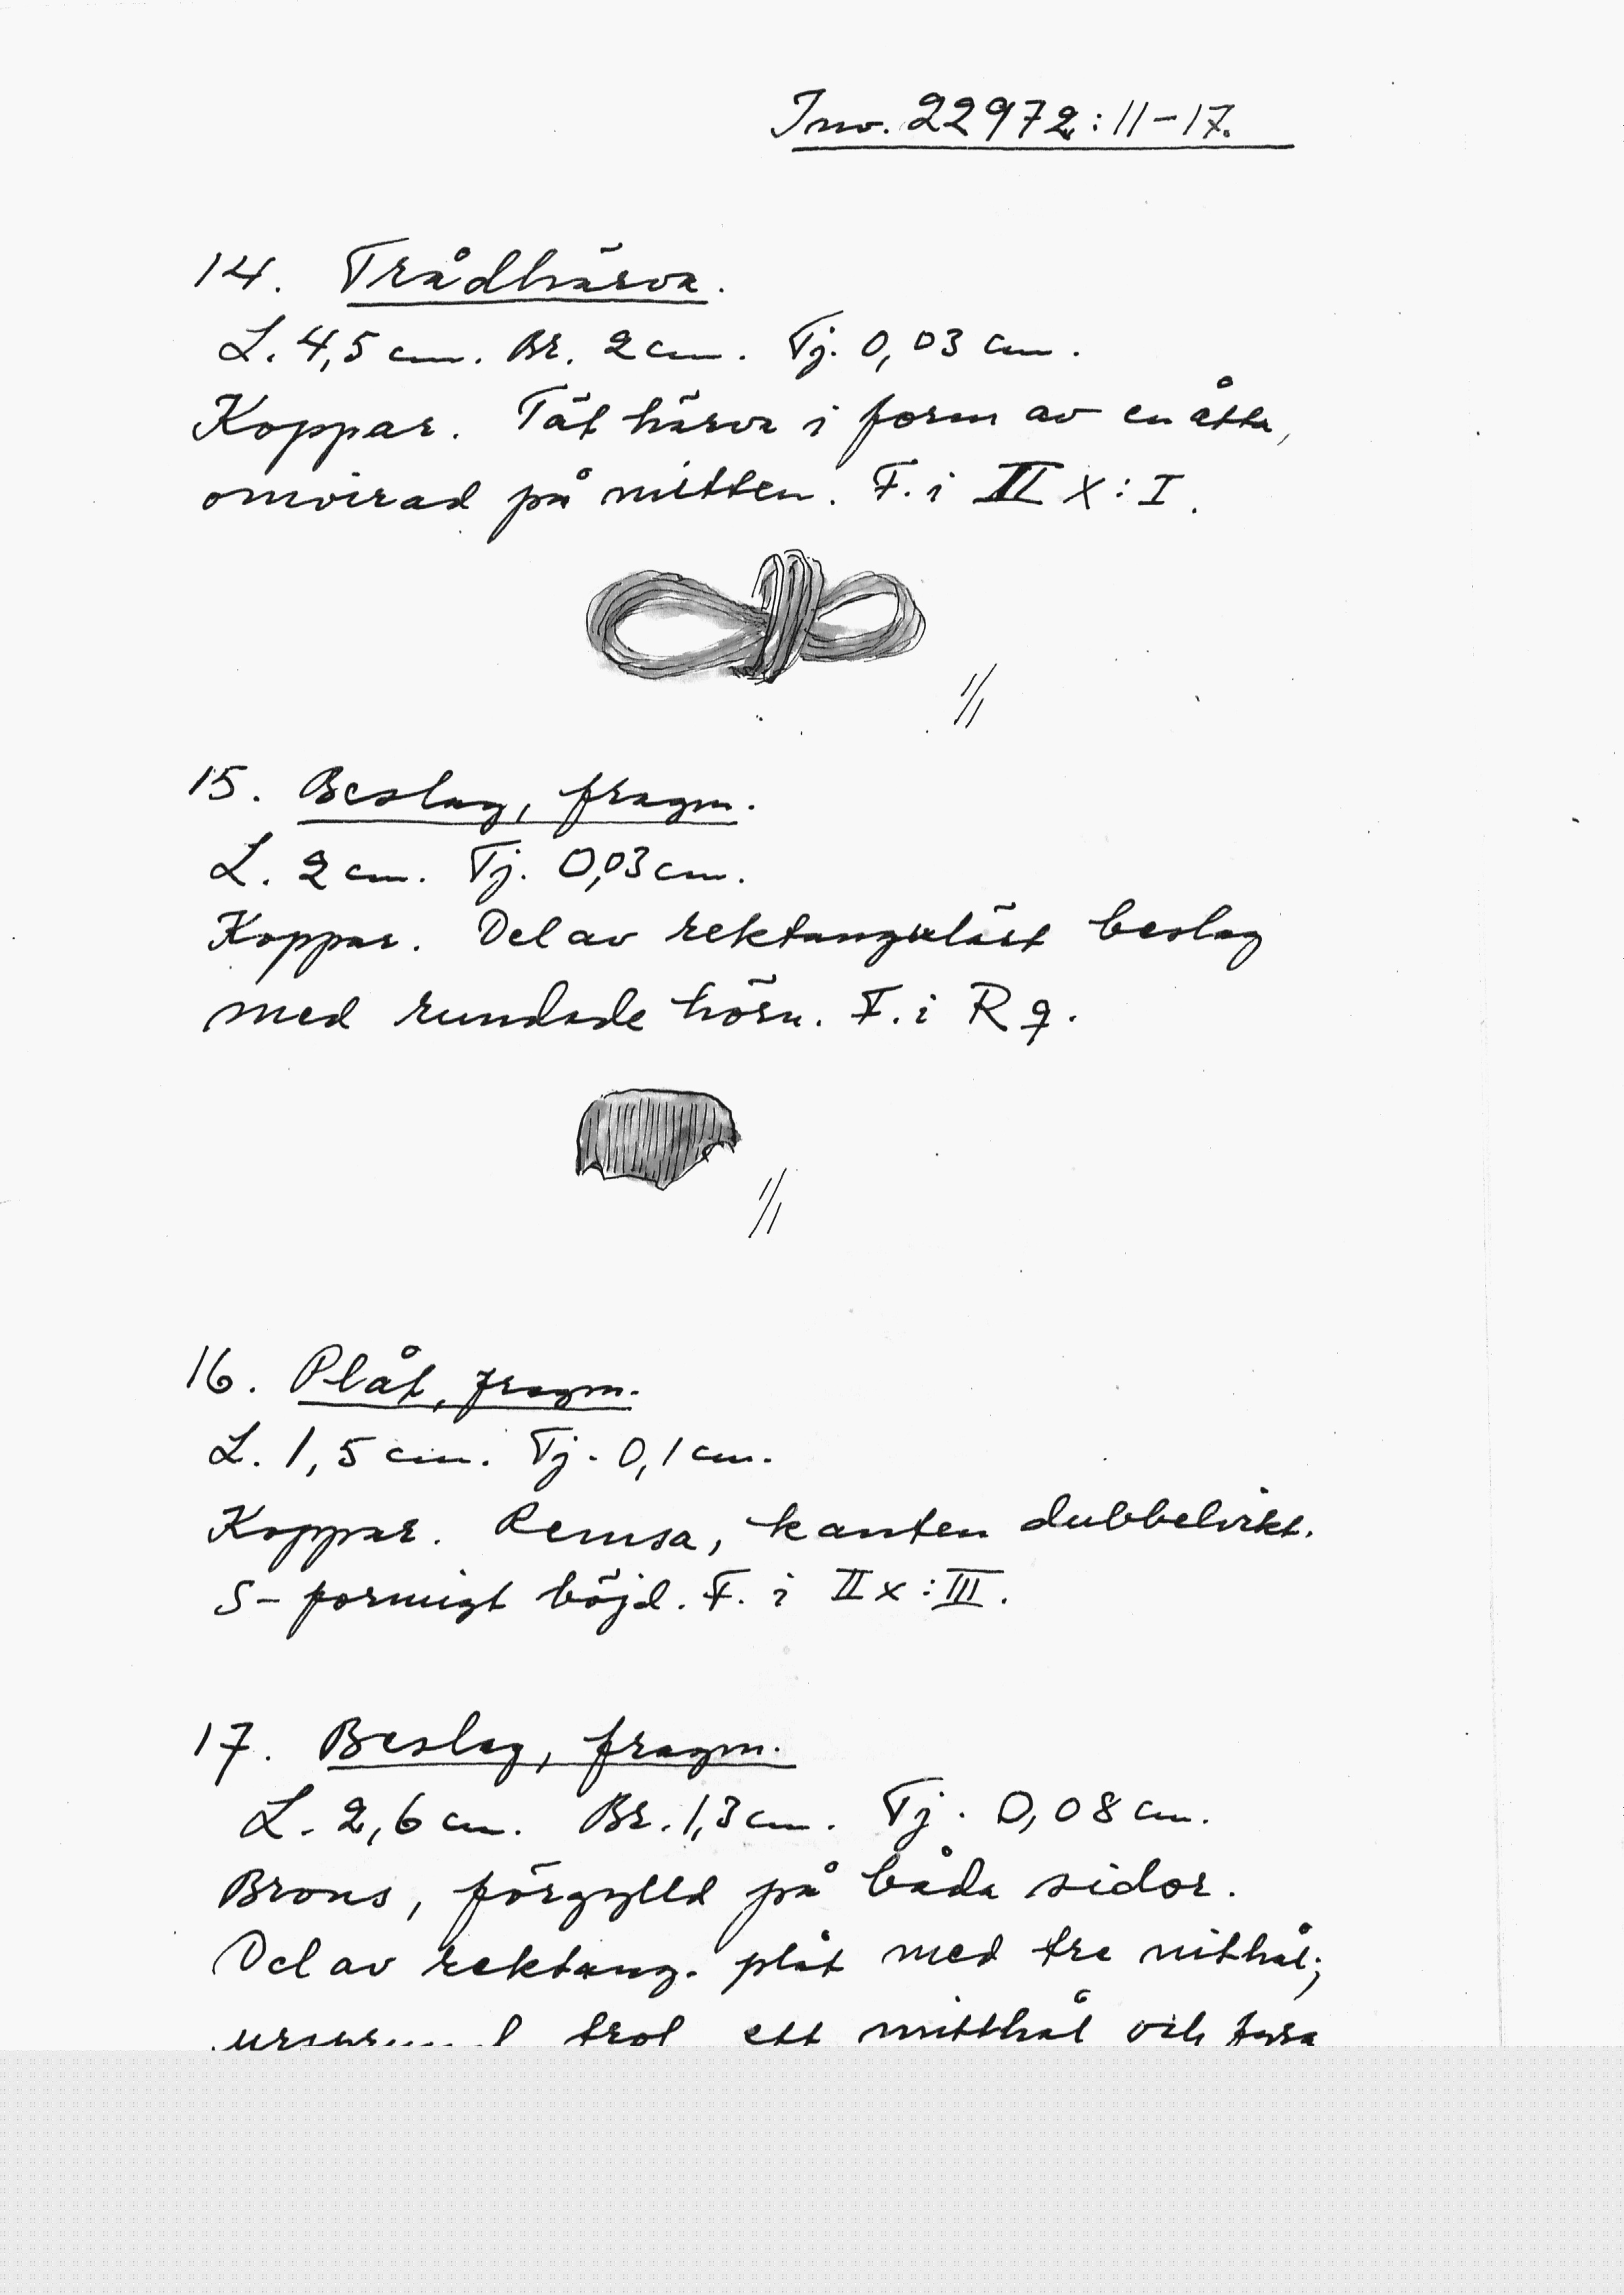 Inv. 22972:11-17.
14. Trådhärva.
L. 4,5 cm. Br. 2 cm. Tj. 0,03 cm.
Koppar. Tät härva i form av en åtta,
omvirad på mitten. F. i II X:I.
1/1
15. Beslag, fragm.
L. 2 cm. Tj. 0,03 cm.
Koppar. Del av rektangulärt beslag
med rundade hörn. F. i R 9.
1/1
16. Plåt, fragm.
L. 1,5 cm. Tj. 0,1 cm.
Koppar. Remsa, kanten dubbelvikt.
S-formigt böjd. F. i II X:III.
17. Beslag, fragm.
L. 2,6 cm. Br. 1,3 cm. Tj. 0,08 cm.
Brons, förgylld på båda sidor.
Del av rektang. plåt med tre nithål;
ett mitthål och fyra